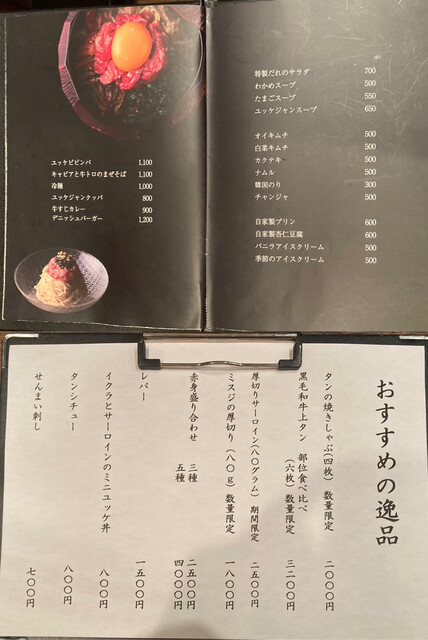 ユッケビビンバ 1,100
キャビアと牛トロのまぜそば 1,100
冷麺 1,000
ユッケジャンクッパ 800
牛すじカレー 900
デニッシュバーガー 1,200
特製だれのサラダ 700
わかめスープ 500
たまごスープ 550
ユッケジャンスープ 650
オイキムチ 500
白菜キムチ 500
カクテキ 500
ナムル 500
韓国のり 300
チャンジャ 500
自家製プリン 600
自家製杏仁豆腐 600
バニラアイスクリーム 500
季節のアイスクリーム 500
おすすめの逸品
タンの焼きしゃぶ(四枚) 数量限定 二〇〇〇円
黒毛和牛上タン 部位食べ比べ
(六枚) 数量限定 三二〇〇円
厚切りサーロイン(八〇グラム) 期間限定 二五〇〇円
ミスジの厚切り(八〇g) 数量限定 一八〇〇円
赤身盛り合わせ 三種 二五〇〇円
五種 四〇〇〇円
レバー 一五〇〇円
イクラとサーロインのミニユッケ丼 八〇〇円
タンシチュー 八〇〇円
せんまい刺し 七〇〇円